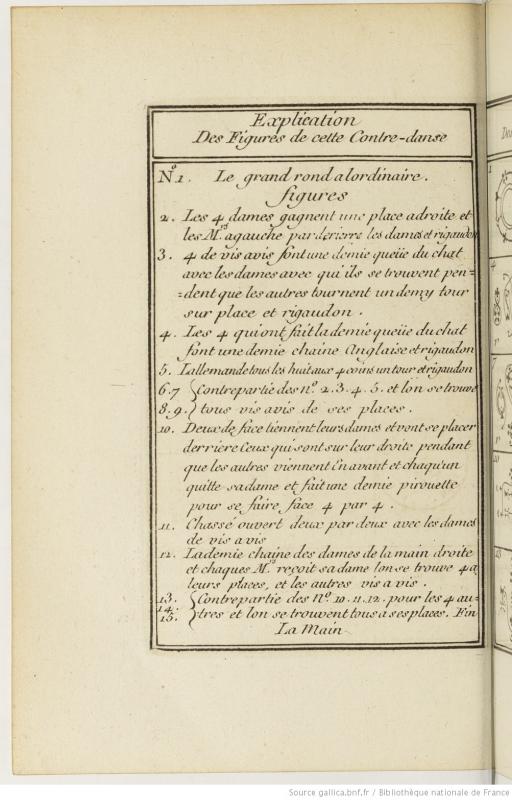 Explication
Des Figures de cette Contre-danse
N.º 1. Le grand rond alordinaire.
figures
2. Les 4 dames gagnent une place adroite et
les M.rs agauche par derierre les dames et rigaudon
3. 4 de vis avis font une demie queüe du chat
avec les dames avec qu'ils se trouvent pen=
=dent que les autres tournent un demy tour
sur place et rigaudon.
4. Les 4 qui ont fait la demie queüe du chat
font une demie chaine Anglaise et rigaudon
5. Lallemande tous les huit aux 4 coins un tour et rigaudon
6.7 { Contrepartie des nº. 2. 3. 4. 5. et lon se trouve
8.9. { tous vis avis de ses places.
10. Deux de face tiennent leurs dames et vont se placer
derriere Ceux qui sont sur leur droite pendant
que les autres viennent En avant et chaqu'un
quitte sa dame et fait une demie pirouette
pour se faire face 4 par 4.
11. Chassé ouvert deux par deux avec les dames
de vis a vis
12. La demie chaine des dames de la main droite
et chaques M.rs reçoit sa dame lon se trouve 4 a
leurs places, et les autres vis a vis.
13. { Contrepartie des Nº. 10. 11. 12. pour les 4 au=
14.
15. { =tres et lon se trouvent tous a ses places. Fin
La Main
Source gallica.bnf.fr / Bibliothèque nationale de France